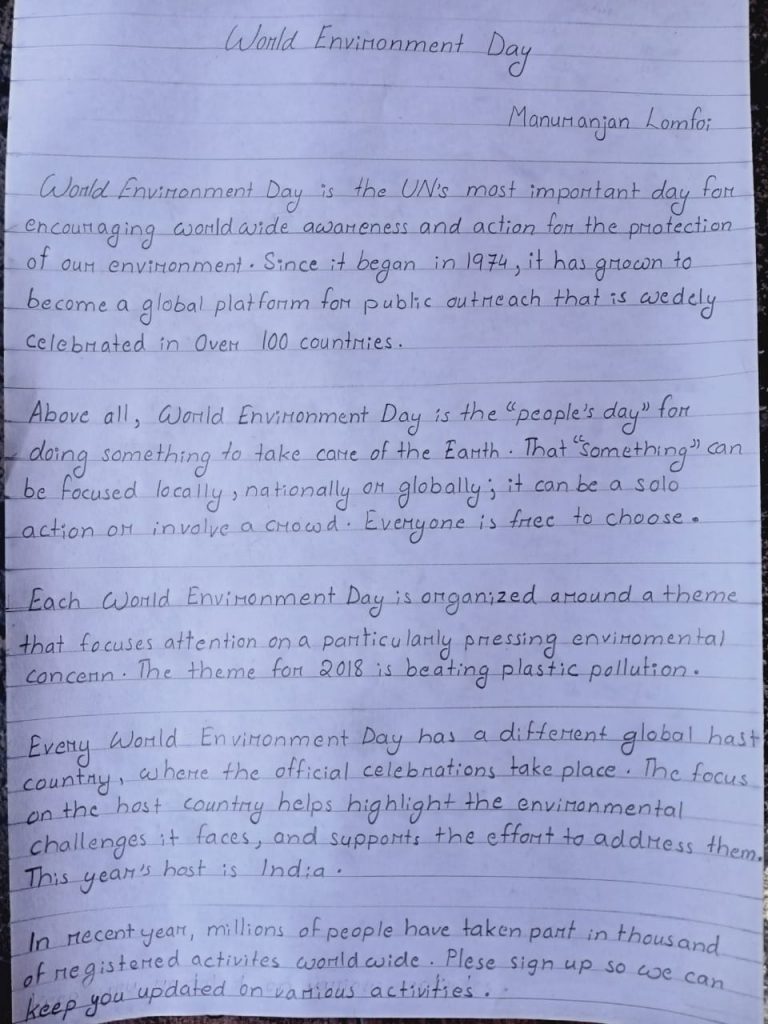 World Environment Day
Manuranjan Lomfoi
World Environment Day is the UN's most important day for
encouraging worldwide awareness and action for the protection
of our environment. Since it began in 1974, it has grown to
become a global platform for public outreach that is wedely
celebrated in Over 100 countries.
Above all, World Environment Day is the "people's day" for
doing something to take care of the Earth. That "something" can
be focused locally, nationally or globally; it can be a solo
action or involve a crowd. Everyone is free to choose.
Each World Environment Day is organized around a theme
that focuses attention on a particularly pressing enviromental
concern. The theme for 2018 is beating plastic pollution.
Every World Environment Day has a different global hast
country, where the official celebrations take place. The focus
on the host country helps highlight the environmental
challenges it faces, and supports the effort to address them.
This year's host is India.
In recent year, millions of people have taken part in thousand
of registered activites worldwide. Plese sign up so we can
keep you updated on various activities.